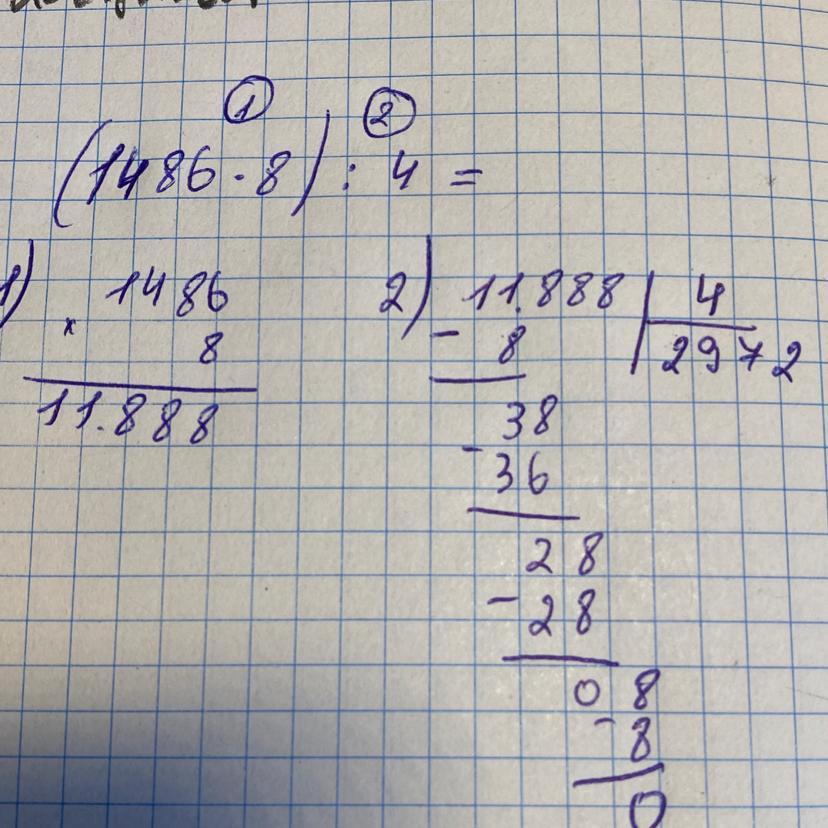 ① ②
(1486 · 8) : 4 =
1) 1486
× 8
11.888
2) 11.888 | 4
- 8 2972
38
- 36
28
- 28
08
- 8
0